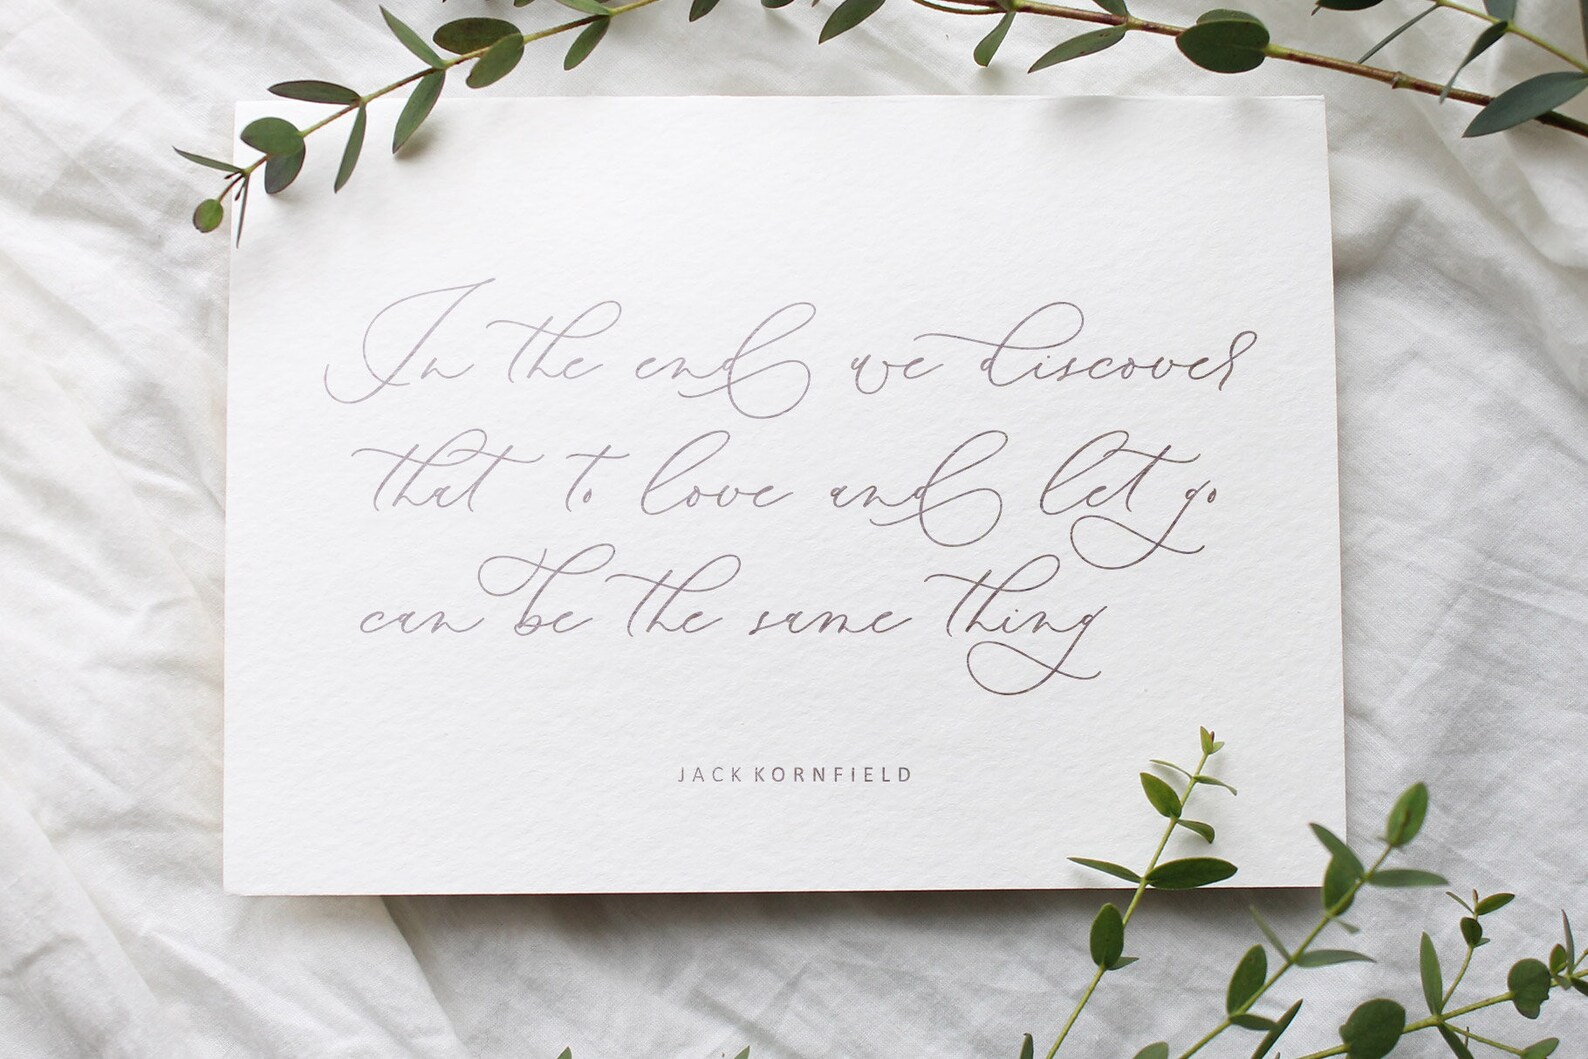 In the end we discover
that to love and let go
can be the same thing
JACK KORNFIELD